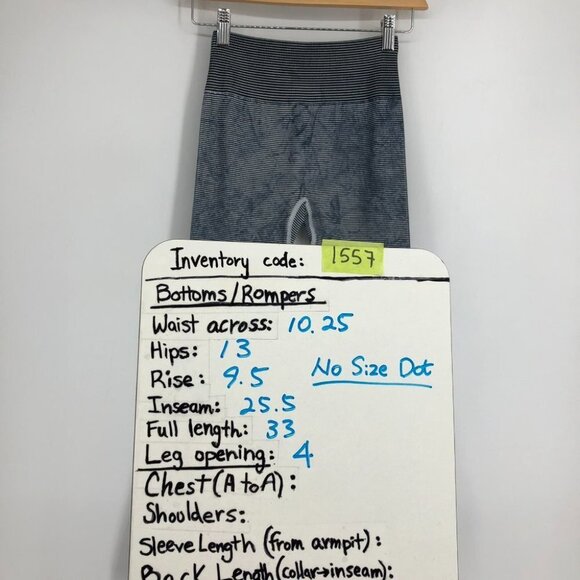 Inventory code: 1557
Bottoms/Rompers
Waist across: 10.25
Hips: 13
No Size Dot
Rise: 9.5
Inseam: 25.5
Full length: 33
Leg opening: 4
Chest (A to A):
Shoulders:
Sleeve Length (from armpit):
Back Length (collar→inseam):